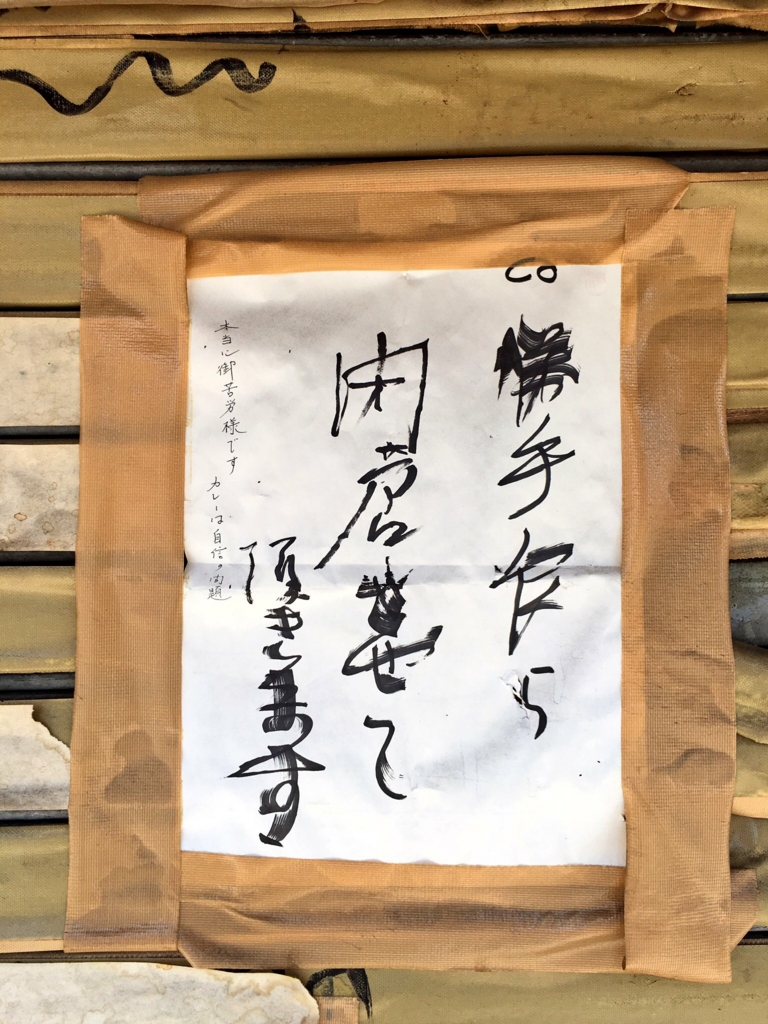 CO
勝手乍ら
閉店させて
頂きます
本当に御苦労様です
カレーは自信の問題